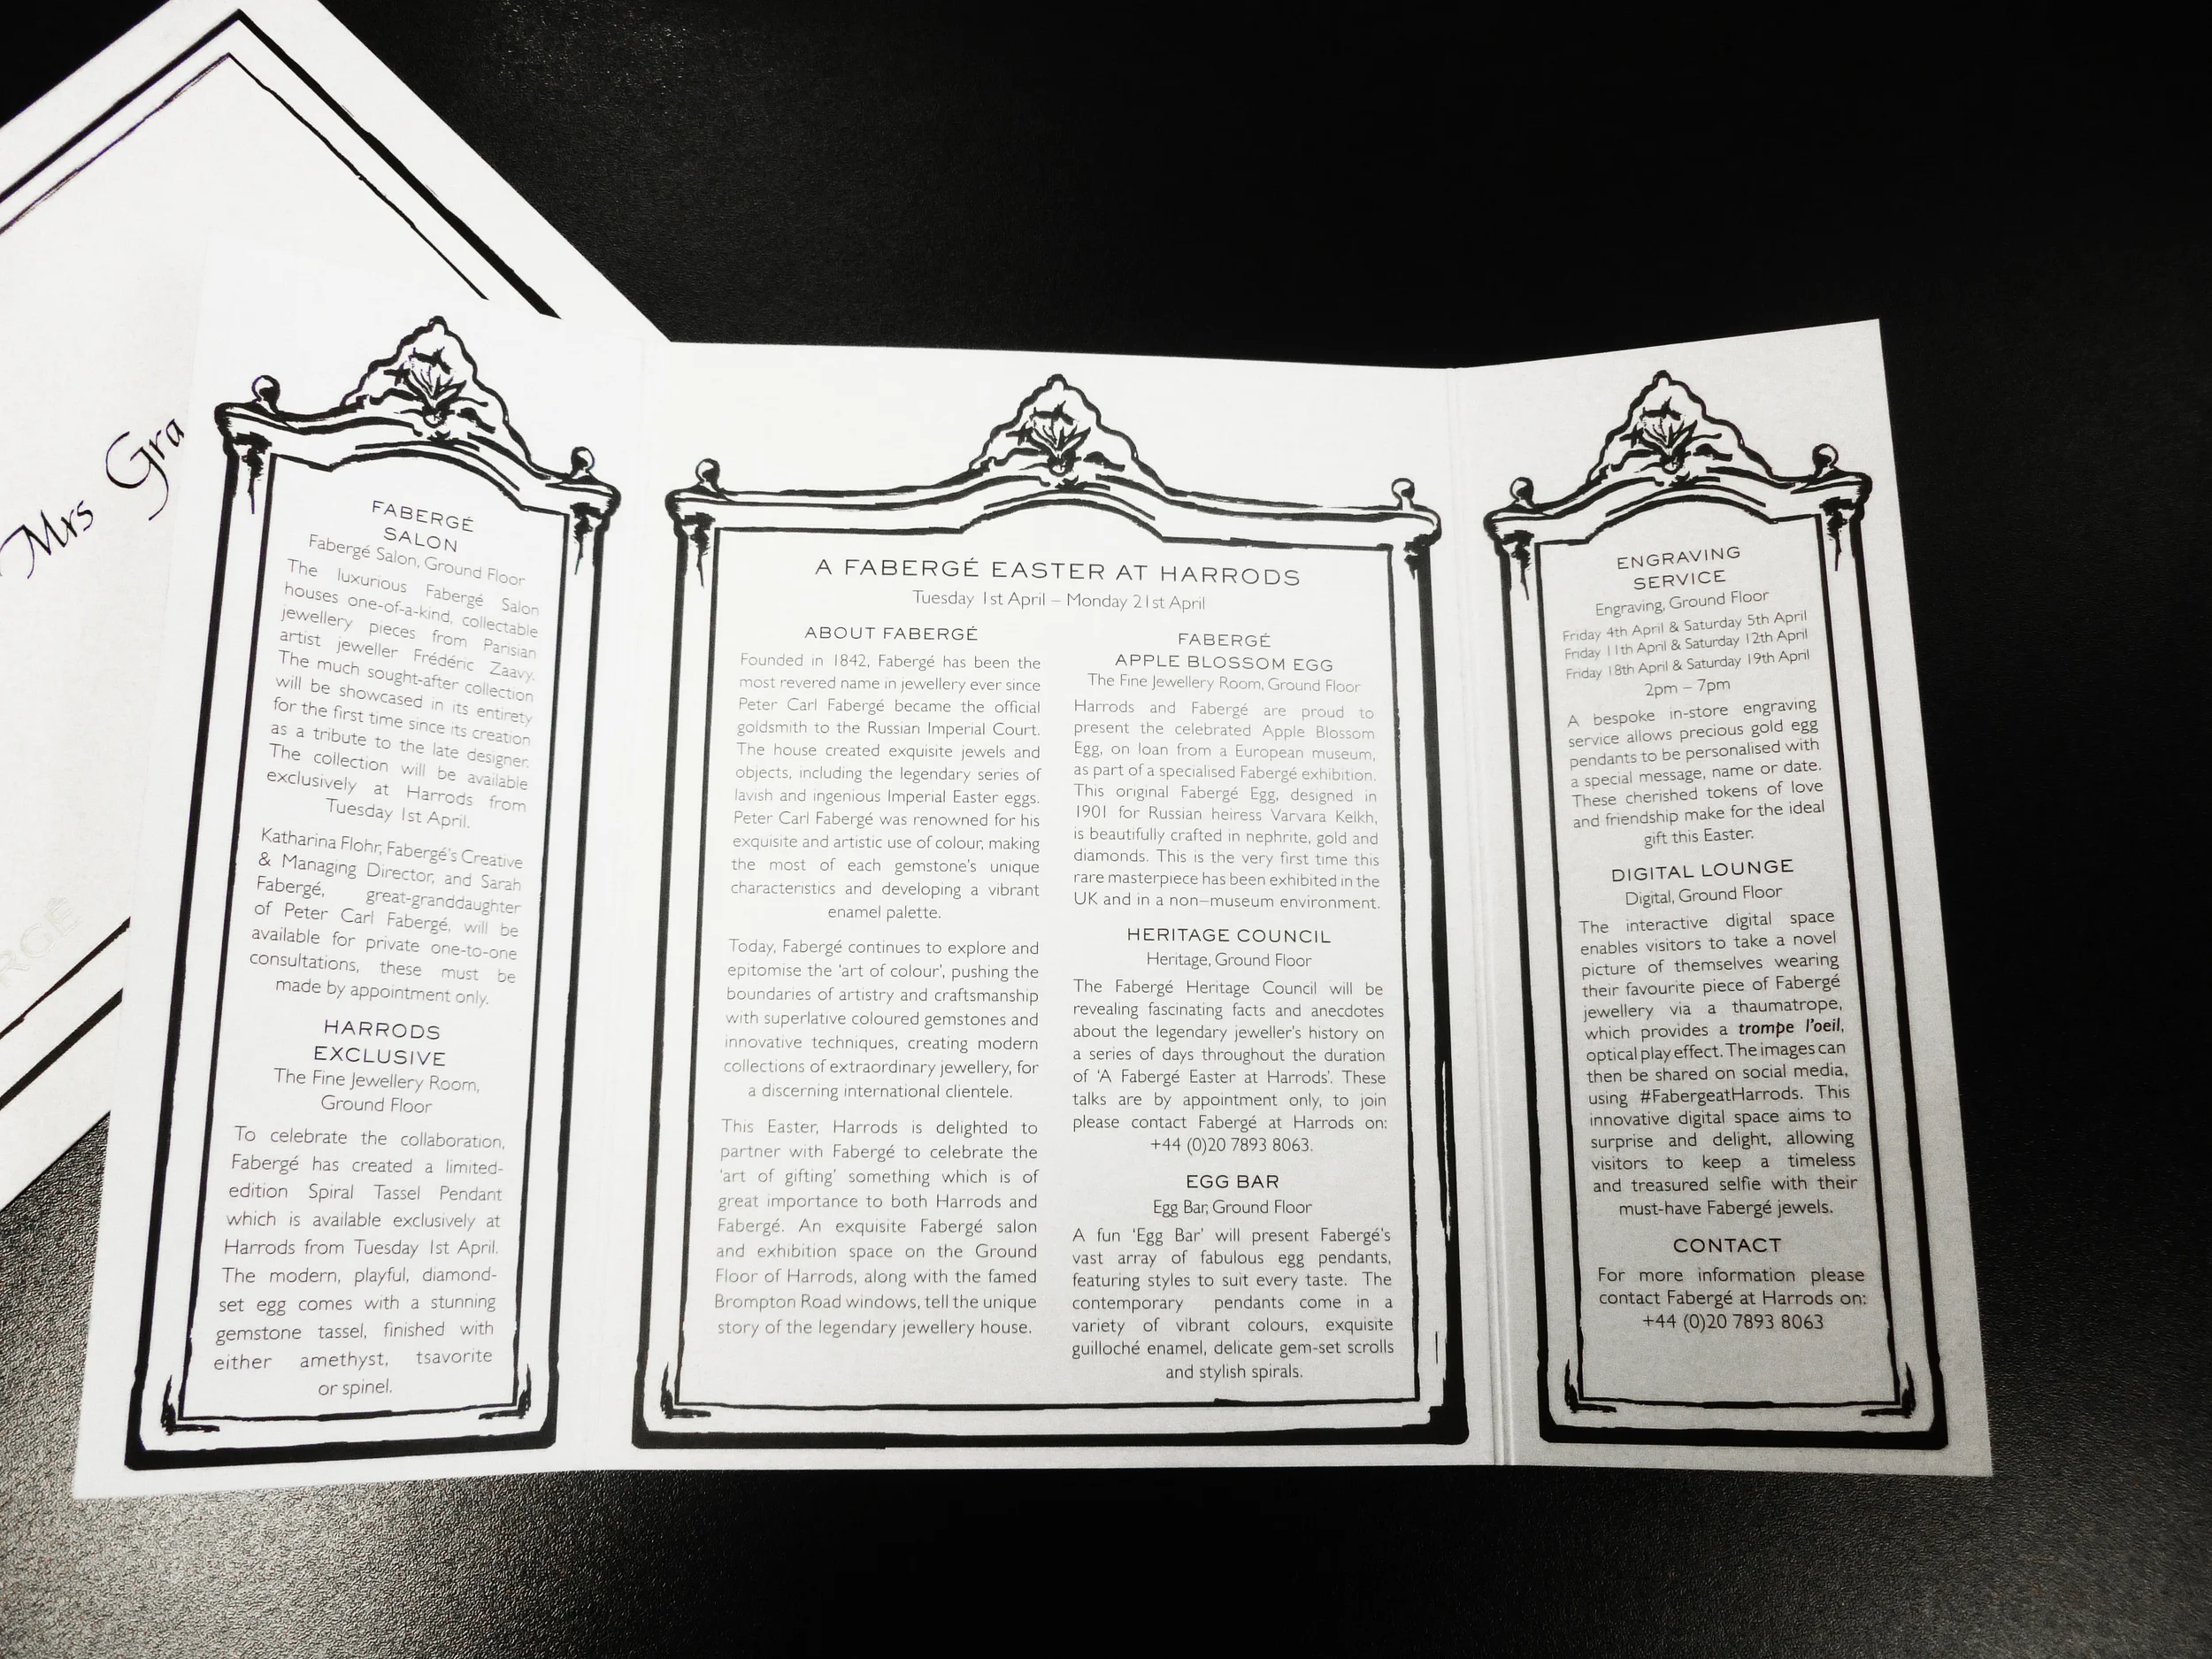 Mrs Gra
RGÉ
FABERGÉ
SALON
Fabergé Salon, Ground Floor
The luxurious Fabergé Salon
houses one-of-a-kind, collectable
jewellery pieces from Parisian
artist jeweller Frédéric Zaavy.
The much sought-after collection
will be showcased in its entirety
for the first time since its creation
as a tribute to the late designer.
The collection will be available
exclusively at Harrods from
Tuesday 1st April.
Katharina Flohr, Fabergé's Creative
& Managing Director, and Sarah
Fabergé, great-granddaughter
of Peter Carl Fabergé, will be
available for private one-to-one
consultations, these must be
made by appointment only.
HARRODS
EXCLUSIVE
The Fine Jewellery Room,
Ground Floor
To celebrate the collaboration,
Fabergé has created a limited-
edition Spiral Tassel Pendant
which is available exclusively at
Harrods from Tuesday 1st April.
The modern, playful, diamond-
set egg comes with a stunning
gemstone tassel, finished with
either amethyst, tsavorite
or spinel.
A FABERGÉ EASTER AT HARRODS
Tuesday 1st April – Monday 21st April
ABOUT FABERGÉ
Founded in 1842, Fabergé has been the
most revered name in jewellery ever since
Peter Carl Fabergé became the official
goldsmith to the Russian Imperial Court.
The house created exquisite jewels and
objects, including the legendary series of
lavish and ingenious Imperial Easter eggs.
Peter Carl Fabergé was renowned for his
exquisite and artistic use of colour, making
the most of each gemstone's unique
characteristics and developing a vibrant
enamel palette.
Today, Fabergé continues to explore and
epitomise the 'art of colour', pushing the
boundaries of artistry and craftsmanship
with superlative coloured gemstones and
innovative techniques, creating modern
collections of extraordinary jewellery, for
a discerning international clientele.
This Easter, Harrods is delighted to
partner with Fabergé to celebrate the
'art of gifting' something which is of
great importance to both Harrods and
Fabergé. An exquisite Fabergé salon
and exhibition space on the Ground
Floor of Harrods, along with the famed
Brompton Road windows, tell the unique
story of the legendary jewellery house.
FABERGÉ
APPLE BLOSSOM EGG
The Fine Jewellery Room, Ground Floor
Harrods and Fabergé are proud to
present the celebrated Apple Blossom
Egg, on loan from a European museum,
as part of a specialised Fabergé exhibition.
This original Fabergé Egg, designed in
1901 for Russian heiress Varvara Kelkh,
is beautifully crafted in nephrite, gold and
diamonds. This is the very first time this
rare masterpiece has been exhibited in the
UK and in a non–museum environment.
HERITAGE COUNCIL
Heritage, Ground Floor
The Fabergé Heritage Council will be
revealing fascinating facts and anecdotes
about the legendary jeweller's history on
a series of days throughout the duration
of 'A Fabergé Easter at Harrods'. These
talks are by appointment only, to join
please contact Fabergé at Harrods on:
+44 (0)20 7893 8063.
EGG BAR
Egg Bar, Ground Floor
A fun 'Egg Bar' will present Fabergé's
vast array of fabulous egg pendants,
featuring styles to suit every taste. The
contemporary pendants come in a
variety of vibrant colours, exquisite
guilloché enamel, delicate gem-set scrolls
and stylish spirals.
ENGRAVING
SERVICE
Engraving, Ground Floor
Friday 4th April & Saturday 5th April
Friday 11th April & Saturday 12th April
Friday 18th April & Saturday 19th April
2pm – 7pm
A bespoke in-store engraving
service allows precious gold egg
pendants to be personalised with
a special message, name or date.
These cherished tokens of love
and friendship make for the ideal
gift this Easter.
DIGITAL LOUNGE
Digital, Ground Floor
The interactive digital space
enables visitors to take a novel
picture of themselves wearing
their favourite piece of Fabergé
jewellery via a thaumatrope,
which provides a trompe l'oeil,
optical play effect. The images can
then be shared on social media,
using #FabergeatHarrods. This
innovative digital space aims to
surprise and delight, allowing
visitors to keep a timeless
and treasured selfie with their
must-have Fabergé jewels.
CONTACT
For more information please
contact Fabergé at Harrods on:
+44 (0)20 7893 8063